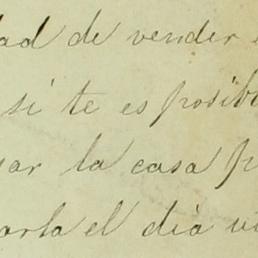 dad de vender
si te es posib
sar la casa p
arla el dia vi